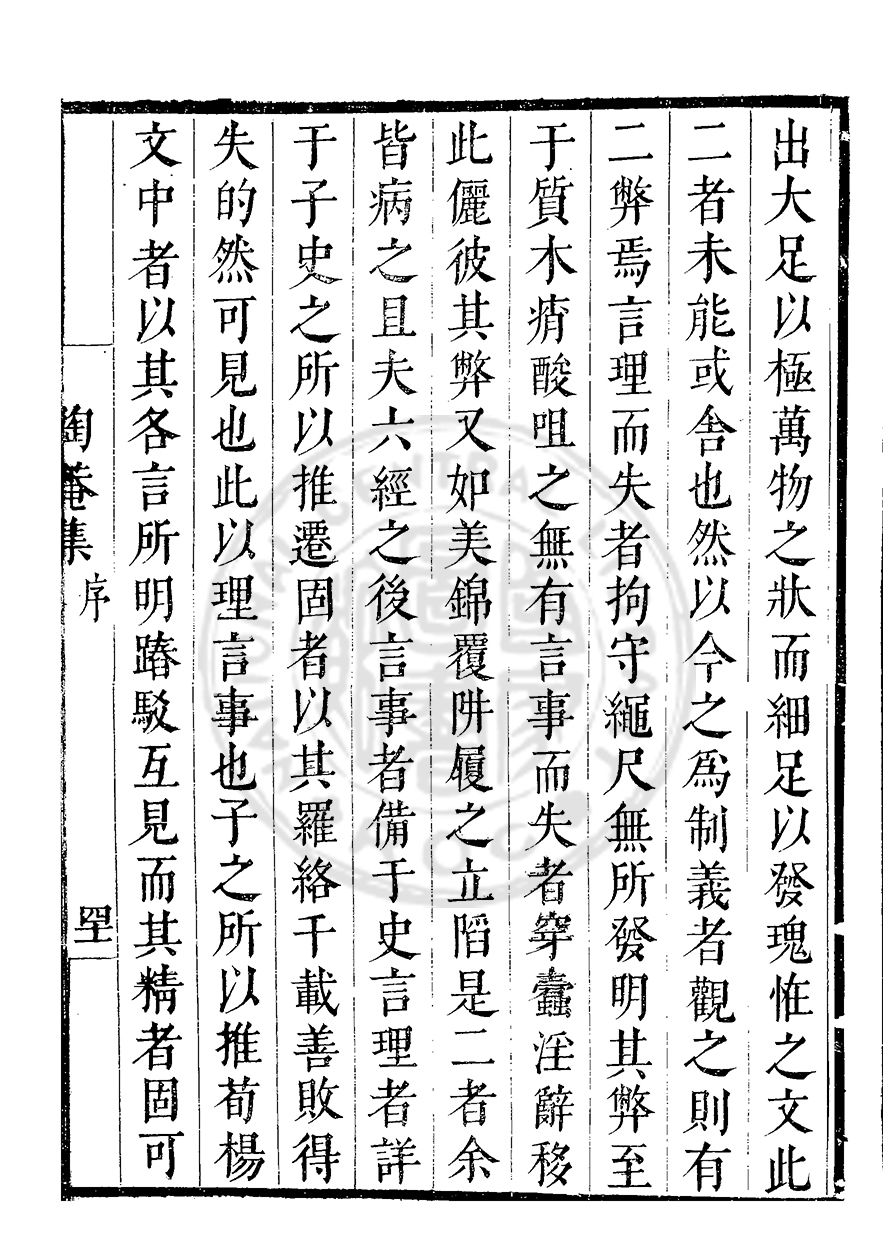 出大足以極萬物之狀而細足以發瑰恠之文此
二者未能或舍也然以今之爲制義者觀之則有
二弊焉言理而失者拘守繩尺無所發明其弊至
于質木瘠酸咀之無有言事而失者穿蠹淫辭移
此儷彼其弊又如美錦覆阱履之立陷是二者余
皆病之且夫六經之後言事者備于史言理者詳
于子史之所以推遷固者以其羅絡千載善敗得
失的然可見也此以理言事也子之所以推荀楊
文中者以其各言所明踳駁互見而其精者固可
陶菴集 序